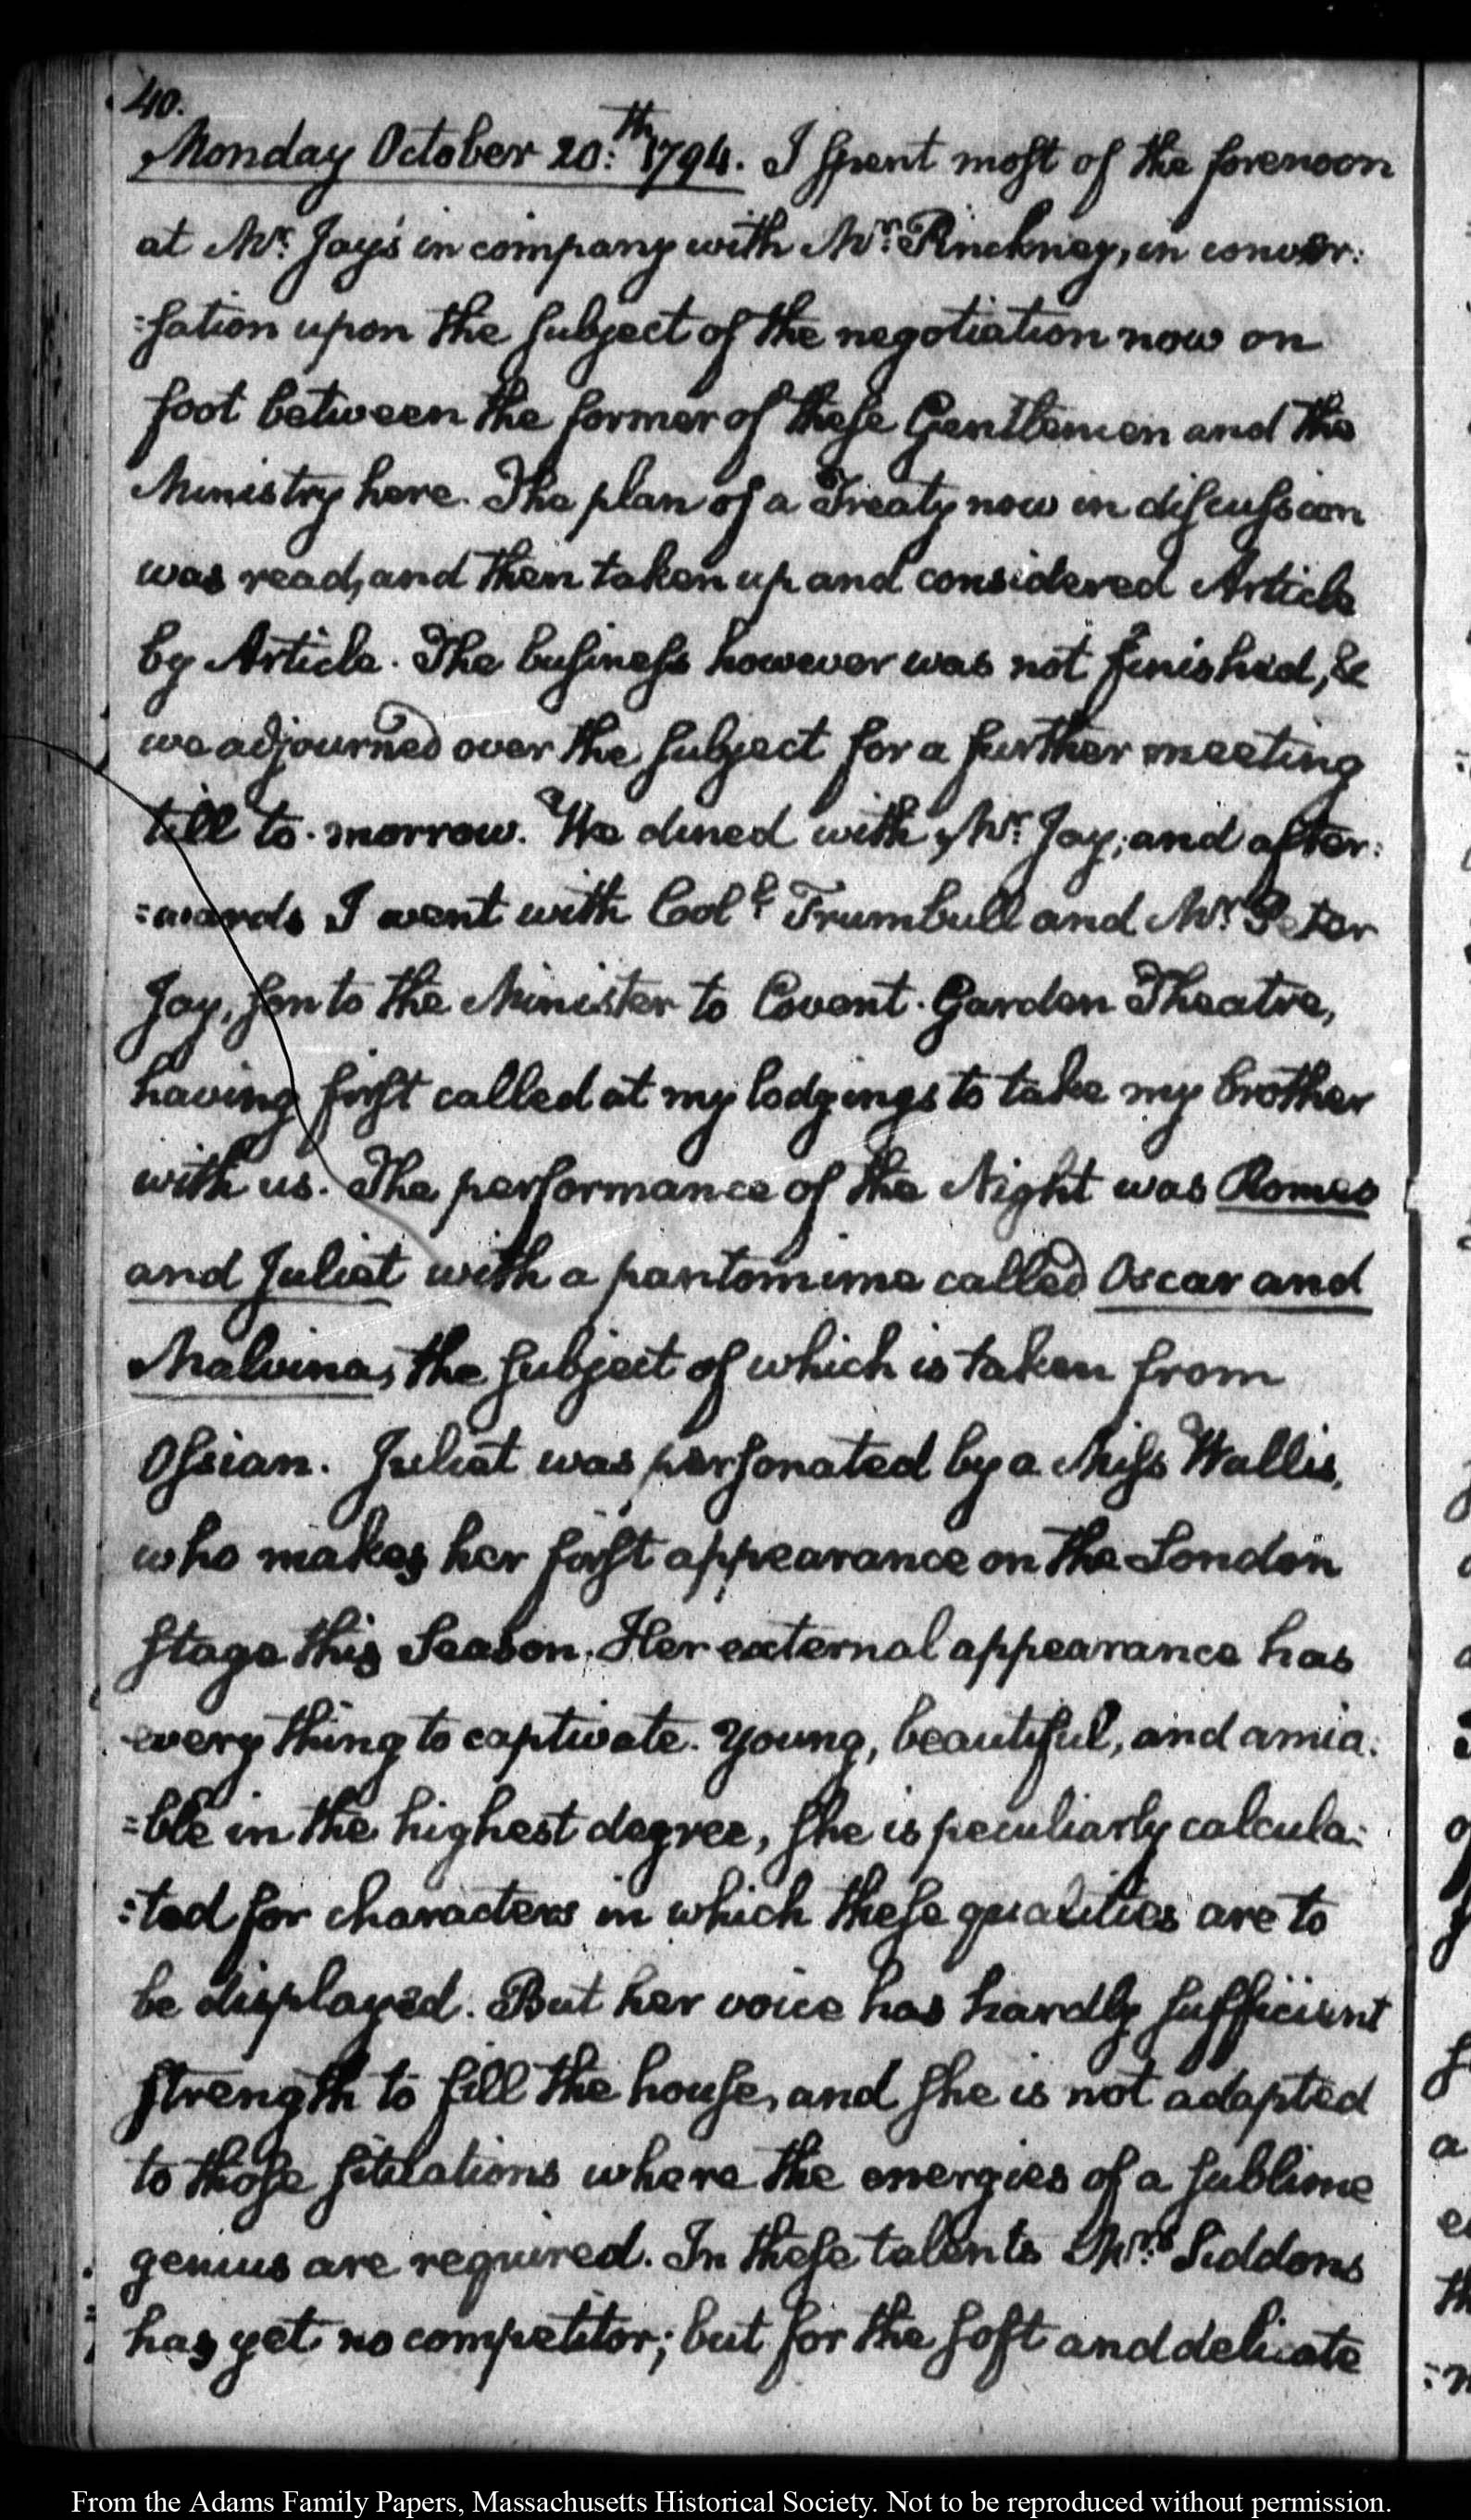 40.
Monday October 20:th 1794. I spent most of the forenoon
at Mr: Jay's in company with Mr: Pinckney, in conver:
:sation upon the subject of the negotiation now on
foot between the former of these Gentlemen and the
Ministry here. The plan of a Treaty now in discussion
was read, and then taken up and considered Article
by Article. The business however was not finished, &
we adjourned over the subject for a further meeting
till to-morrow. We dined with Mr: Jay; and after:
:wards I went with Coll: Trumbull and Mr: Peter
Jay, son to the Minister to Covent-Garden Theatre,
having first called at my lodgings to take my brother
with us. The performance of the Night was Romeo
and Juliet with a pantomime called Oscar and
Malvina, the subject of which is taken from
Ossian. Juliet was personated by a Miss Wallis,
who makes her first appearance on the London
stage this Season. Her external appearance has
every thing to captivate. Young, beautiful, and amia:
=ble in the highest degree, she is peculiarly calcula:
:ted for characters in which these qualities are to
be displayed. But her voice has hardly sufficient
strength to fill the house, and she is not adapted
to those situations where the energies of a sublime
genius are required. In these talents Mrs: Siddons
has yet no competitor; but for the soft and delicate
From the Adams Family Papers, Massachusetts Historical Society. Not to be reproduced without permission.